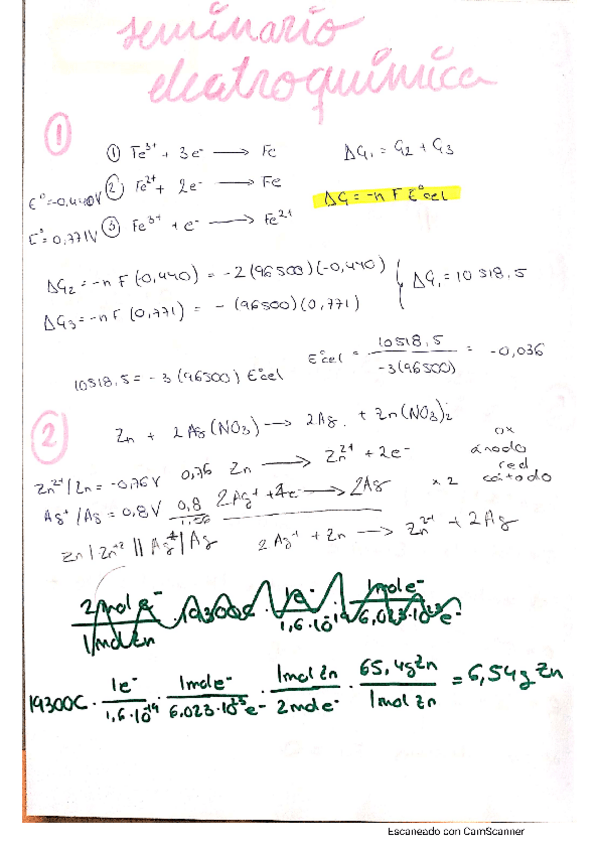 seminario
electroquímica
1
① Fe³⁺ + 3e⁻ ⟶ Fe ΔG₁ = G₂ + G₃
E° = -0,440V ② Fe²⁺ + 2e⁻ ⟶ Fe ΔG = -n F E°cel
E° = 0,771V ③ Fe³⁺ + e⁻ ⟶ Fe²⁺
ΔG₂ = -n F (-0,440) = -2(96500)(-0,440) ΔG₁ = 10518,5
ΔG₃ = -n F (0,771) = - (96500)(0,771)
10518,5 = -3(96500) E°cel E°cel = 10518,5 / -3(96500) = -0,036
2
Zn + 2Ag(NO₃) ⟶ 2Ag + Zn(NO₃)₂
Zn²⁺/Zn = -0,76V 0,76 Zn ⟶ Zn²⁺ + 2e⁻ ox ánodo
Ag⁺/Ag = 0,8V 0,8 2Ag⁺ + e⁻ ⟶ 2Ag x2 red cátodo
1,56
Zn/Zn⁺² || Ag⁺/Ag 2Ag⁺ + Zn ⟶ Zn²⁺ + 2Ag
2mol e⁻ / 1mol Zn · 19300C · 1e⁻ / 1,6·10⁻¹⁹ · 1mol e⁻ / 6,023·10²³e⁻
19300C · 1e⁻ / 1,6·10⁻¹⁹ · 1mol e⁻ / 6,023·10²³e⁻ · 1mol Zn / 2mol e⁻ · 65,4g Zn / 1mol Zn = 6,54g Zn
Escaneado con CamScanner